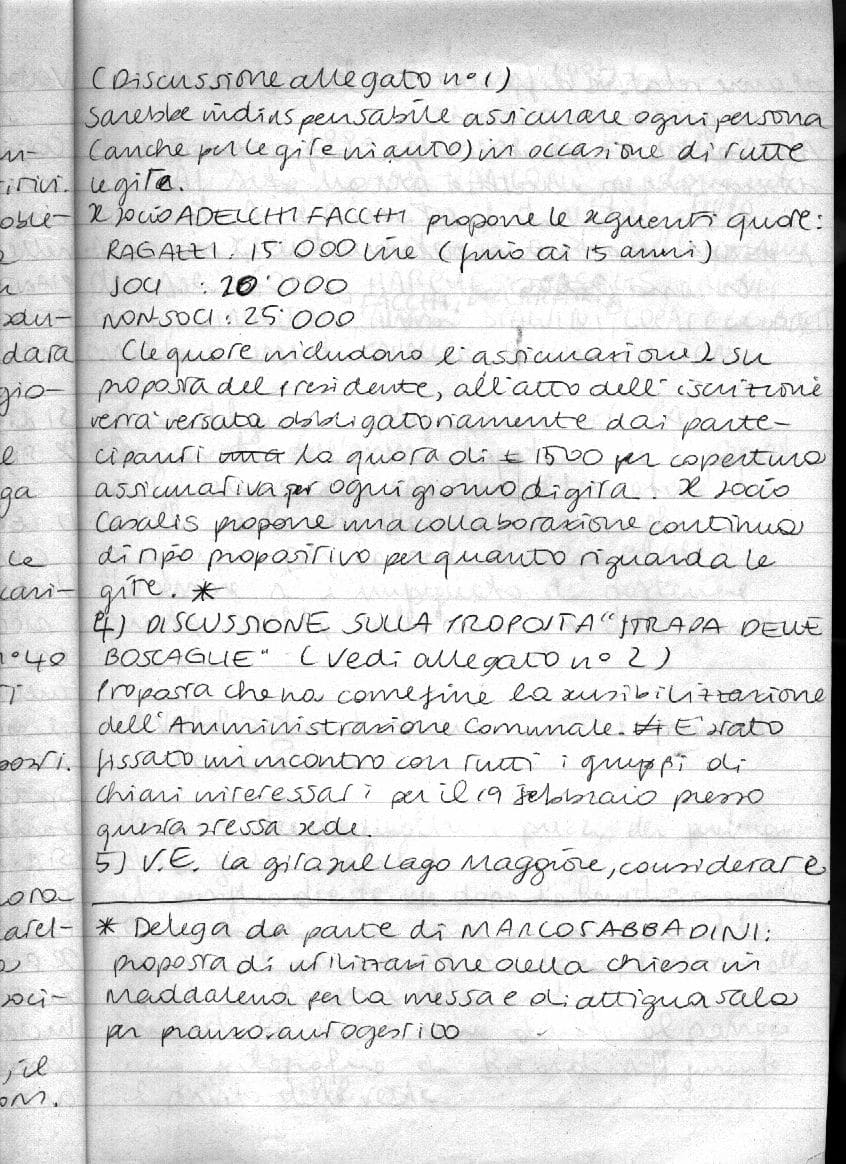 (Discussione allegato n° 1)
Sarebbe indispensabile assicurare ogni persona
(anche per le gite in auto) in occasione di tutte
le gite.
Il socio ADELCHI FACCHI propone le seguenti quote:
RAGAZZI: 15.000 lire (fino ai 15 anni)
SOCI : 20.000
NON SOCI: 25.000
(le quote includono l'assicurazione) su
proposta del Presidente, all'atto dell'iscrizione
verrà versata obbligatoriamente dai parte-
cipanti una la quota di £ 1500 per copertura
assicurativa per ogni giorno di gita. Il socio
Casalis propone una collaborazione continua
di tipo propositivo per quanto riguarda le
gite. *
4) DISCUSSIONE SULLA PROPOSTA "STRADA DELLE
BOSCAGLIE" (vedi allegato n° 2)
Proposta che ha come fine la sensibilizzazione
dell'Amministrazione Comunale. E' stato
fissato un incontro con tutti i gruppi di
Chiari interessati per il 19 febbraio presso
questa stessa sede.
5) V.E. la gita sul Lago Maggiore, considerare
* Delega da parte di MARCO SABBADINI:
proposta di utilizzazione della chiesa in
Maddalena per la messa e di attigua sala
per pranzo autogestito
un-
itivi.
oble-
dara
gio-
e
ga
ce
cari-
n° 40
ora
arel-
soci-
, il